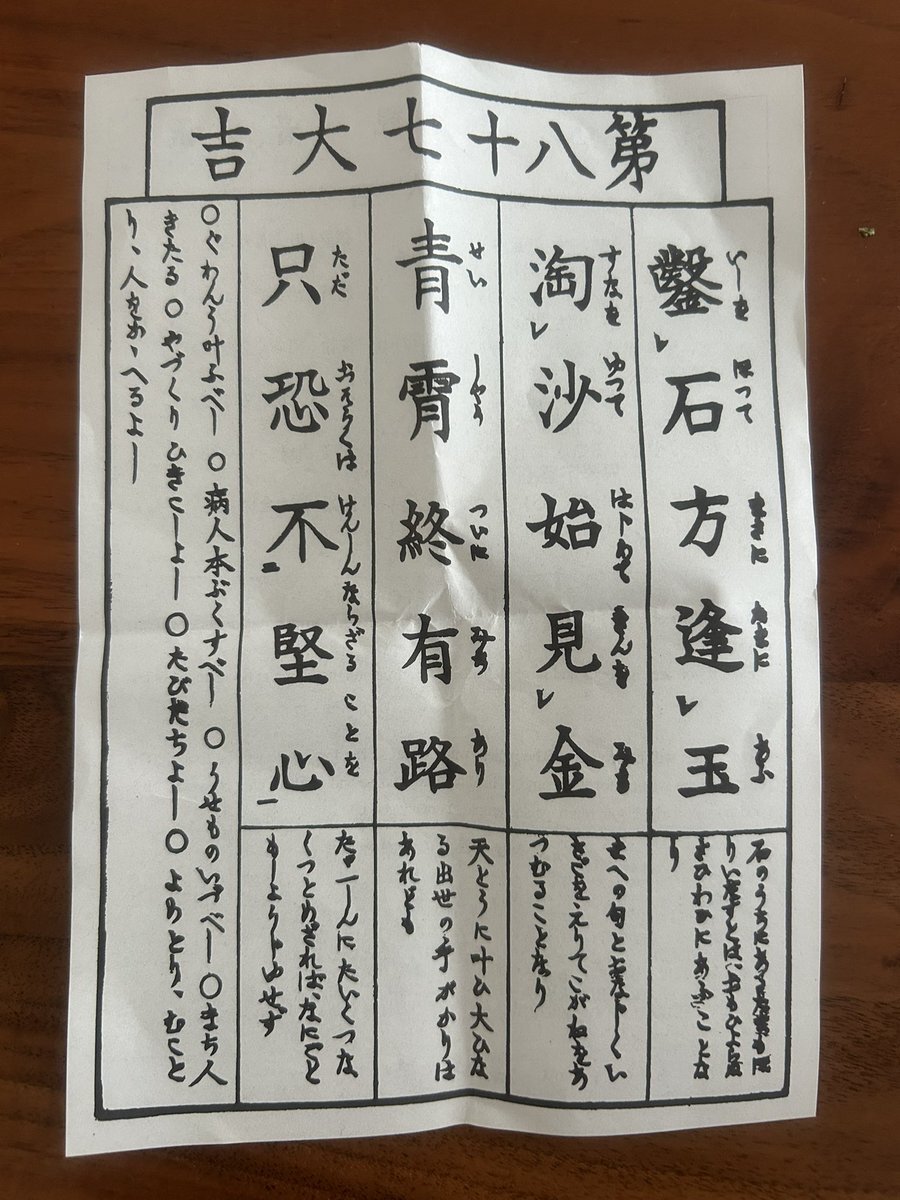 第八十七大吉
鑿石方逢玉
いしを ほつて まさに たまに あふ
石のうちにあるたまをほ
りいだすとは、おもひよらぬ
さひわひにあふことな
り
淘沙始見金
すなを ゆつて はじめて きんを みる
まへの句とおなじくい
さごをえりてこがねをあ
つむることなり
青霄終有路
せい しやう ついに みち あり
天とうに叶ひ大ひな
る出世の手がかりは
あれども
只恐不堅心
ただ おそらくは けんしんならざる ことを
たゞしんにたいくつな
くつとめざれば、なにごと
もじやうじゆせず
〇ぐわんう叶ふべし 〇病人本ぶくすべし 〇うせものいづべし 〇まち人
きたる 〇やづくり ひきこしよし 〇たびだちよし 〇よめとり、むこと
り、人をかゝへるよし